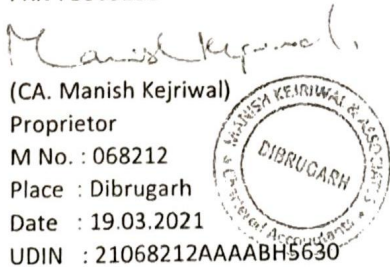 Manish Kejriwal.
(CA. Manish Kejriwal)
Proprietor
M No. : 068212
Place : Dibrugarh
Date : 19.03.2021
UDIN : 21068212AAAABH5630
MANISH KEJRIWAL & ASSOCIATES
DIBRUGARH
Chartered Accountants